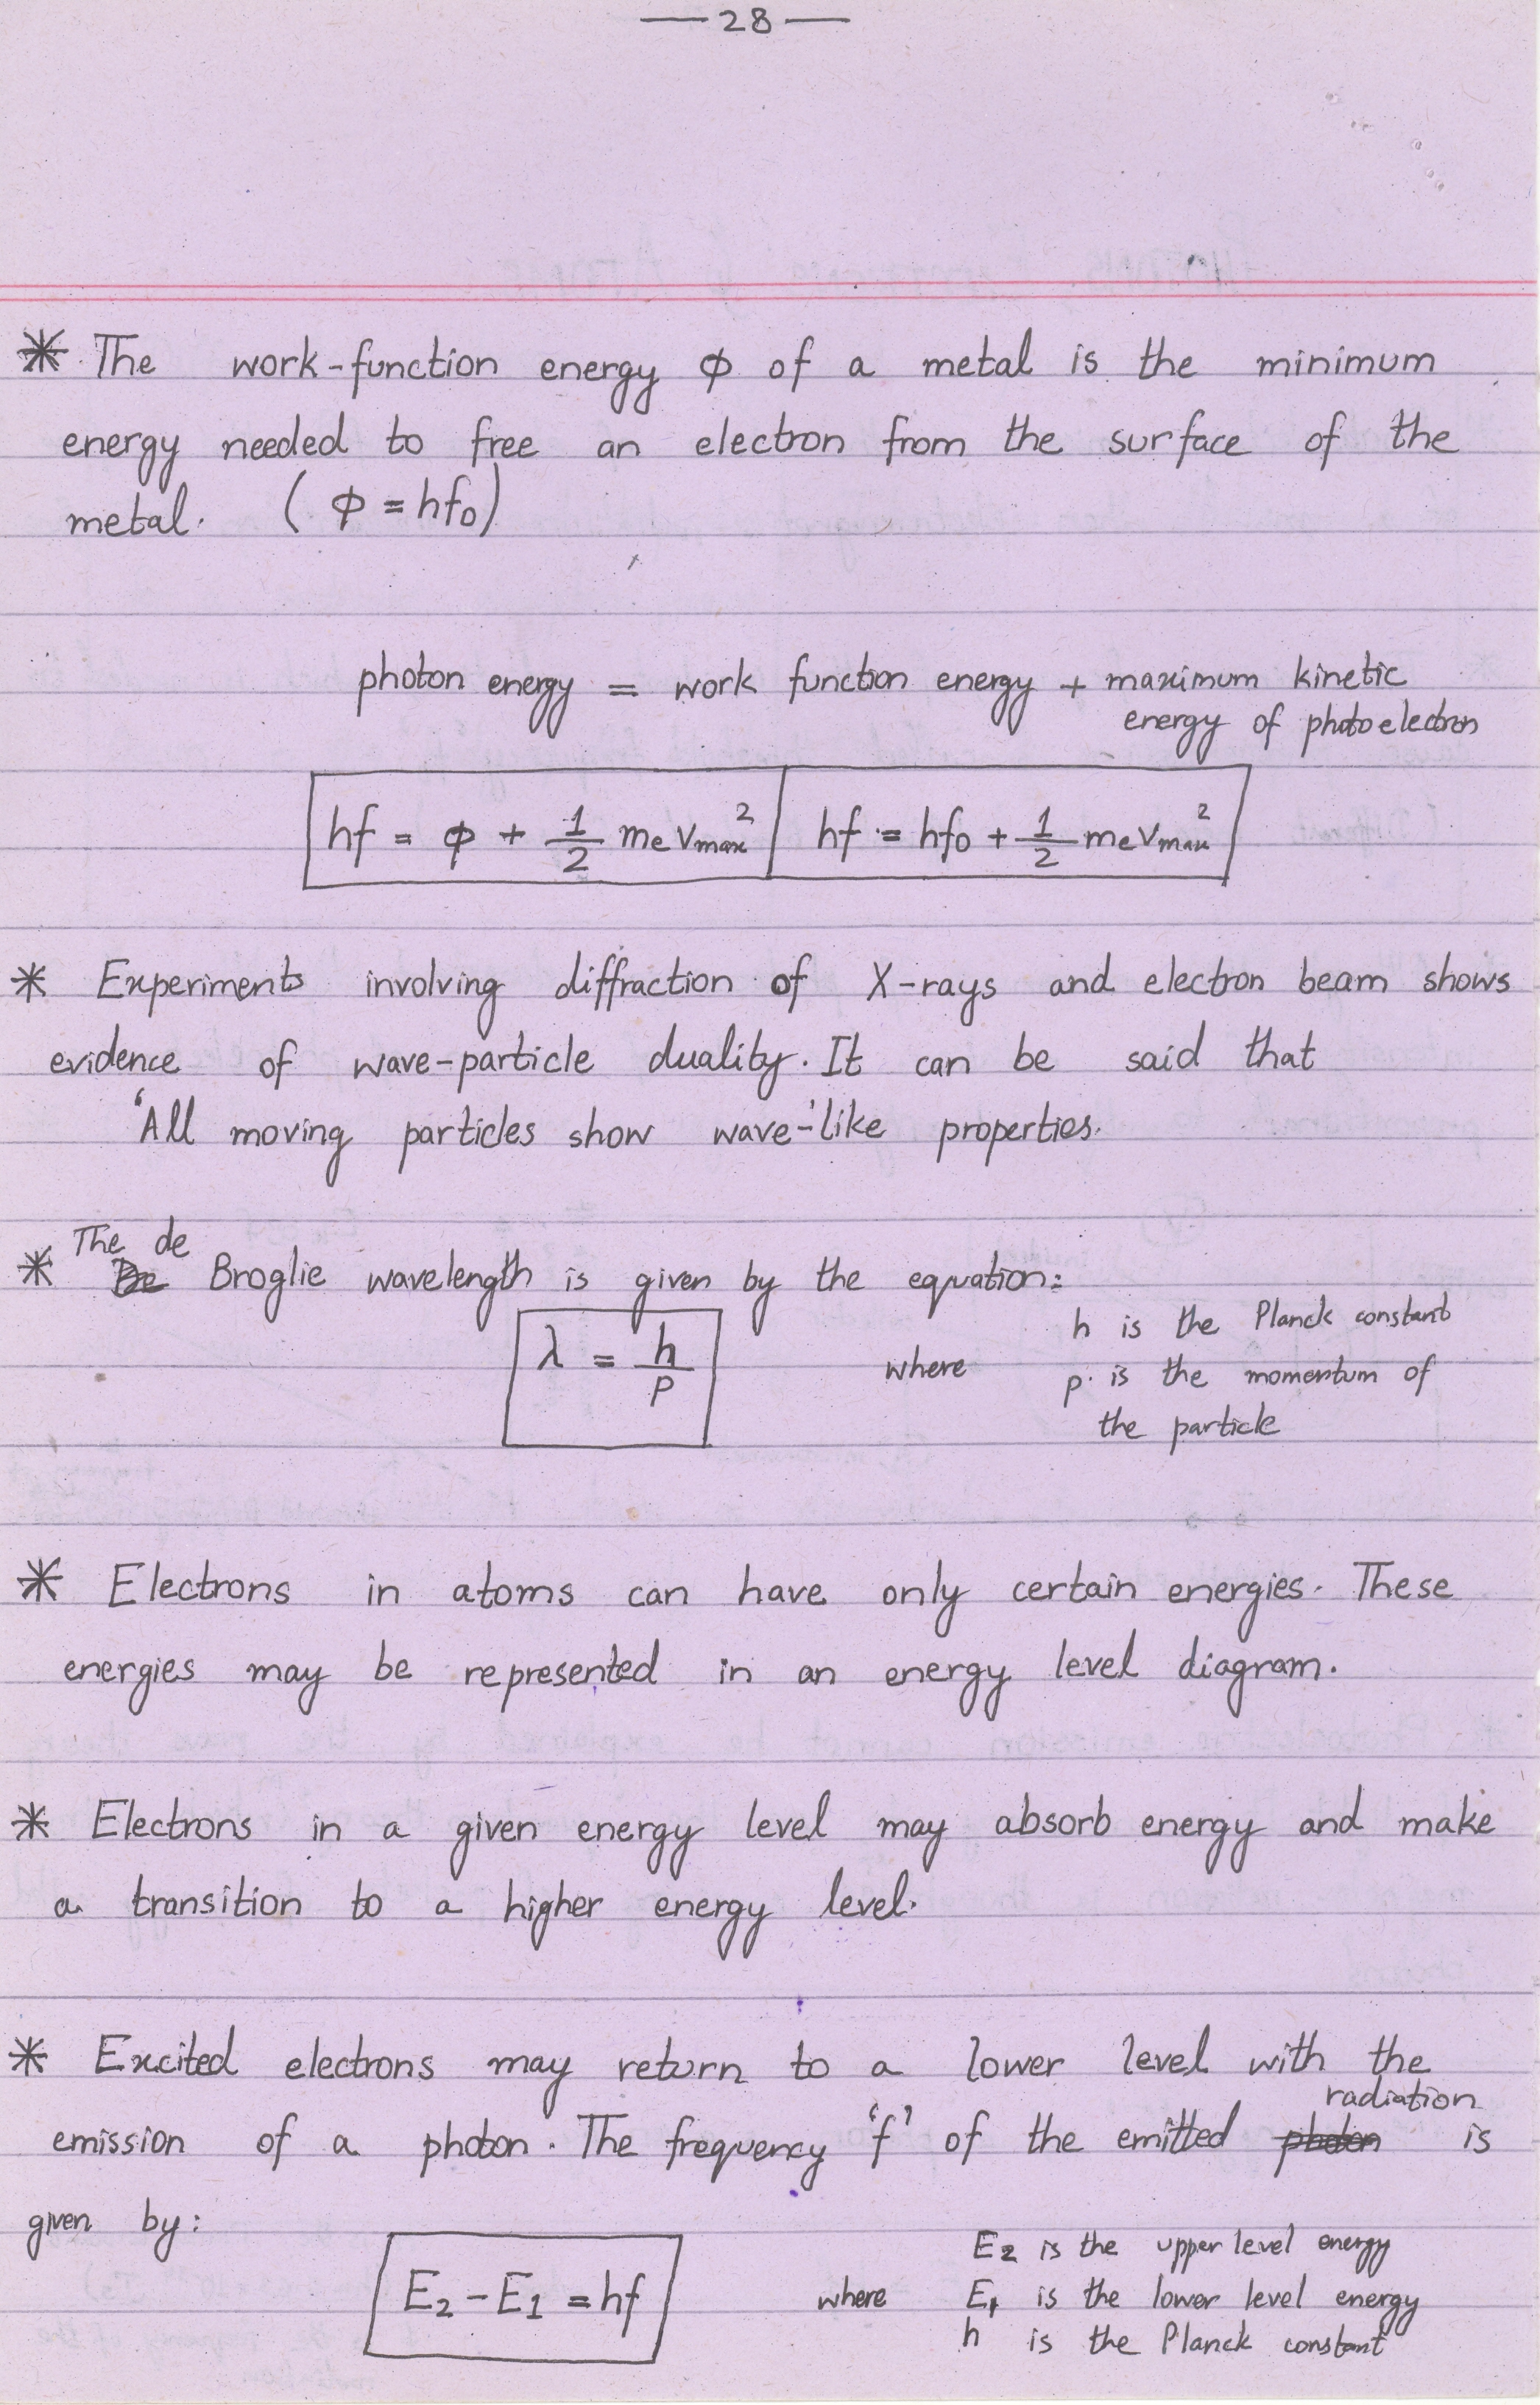 —28—
* The work-function energy ϕ of a metal is the minimum
energy needed to free an electron from the surface of the
metal. (ϕ = hf₀)
photon energy = work function energy + maximum kinetic
energy of photoelectron
hf = ϕ + 1/2 mₑvₘₐₓ² hf = hf₀ + 1/2 mₑvₘₐₓ²
* Experiments involving diffraction of X-rays and electron beam shows
evidence of wave-particle duality. It can be said that
'All moving particles show wave-'like properties.
The de
* Broglie wavelength is given by the equation:
λ = h/p where h is the Planck constant
p is the momentum of
the particle
* Electrons in atoms can have only certain energies. These
energies may be represented in an energy level diagram.
* Electrons in a given energy level may absorb energy and make
a transition to a higher energy level.
* Excited electrons may return to a lower level with the
radiation
emission of a photon. The frequency 'f' of the emitted photon is
given by:
E₂ is the upper level energy
E₂ - E₁ = hf where E₁ is the lower level energy
h is the Planck constant